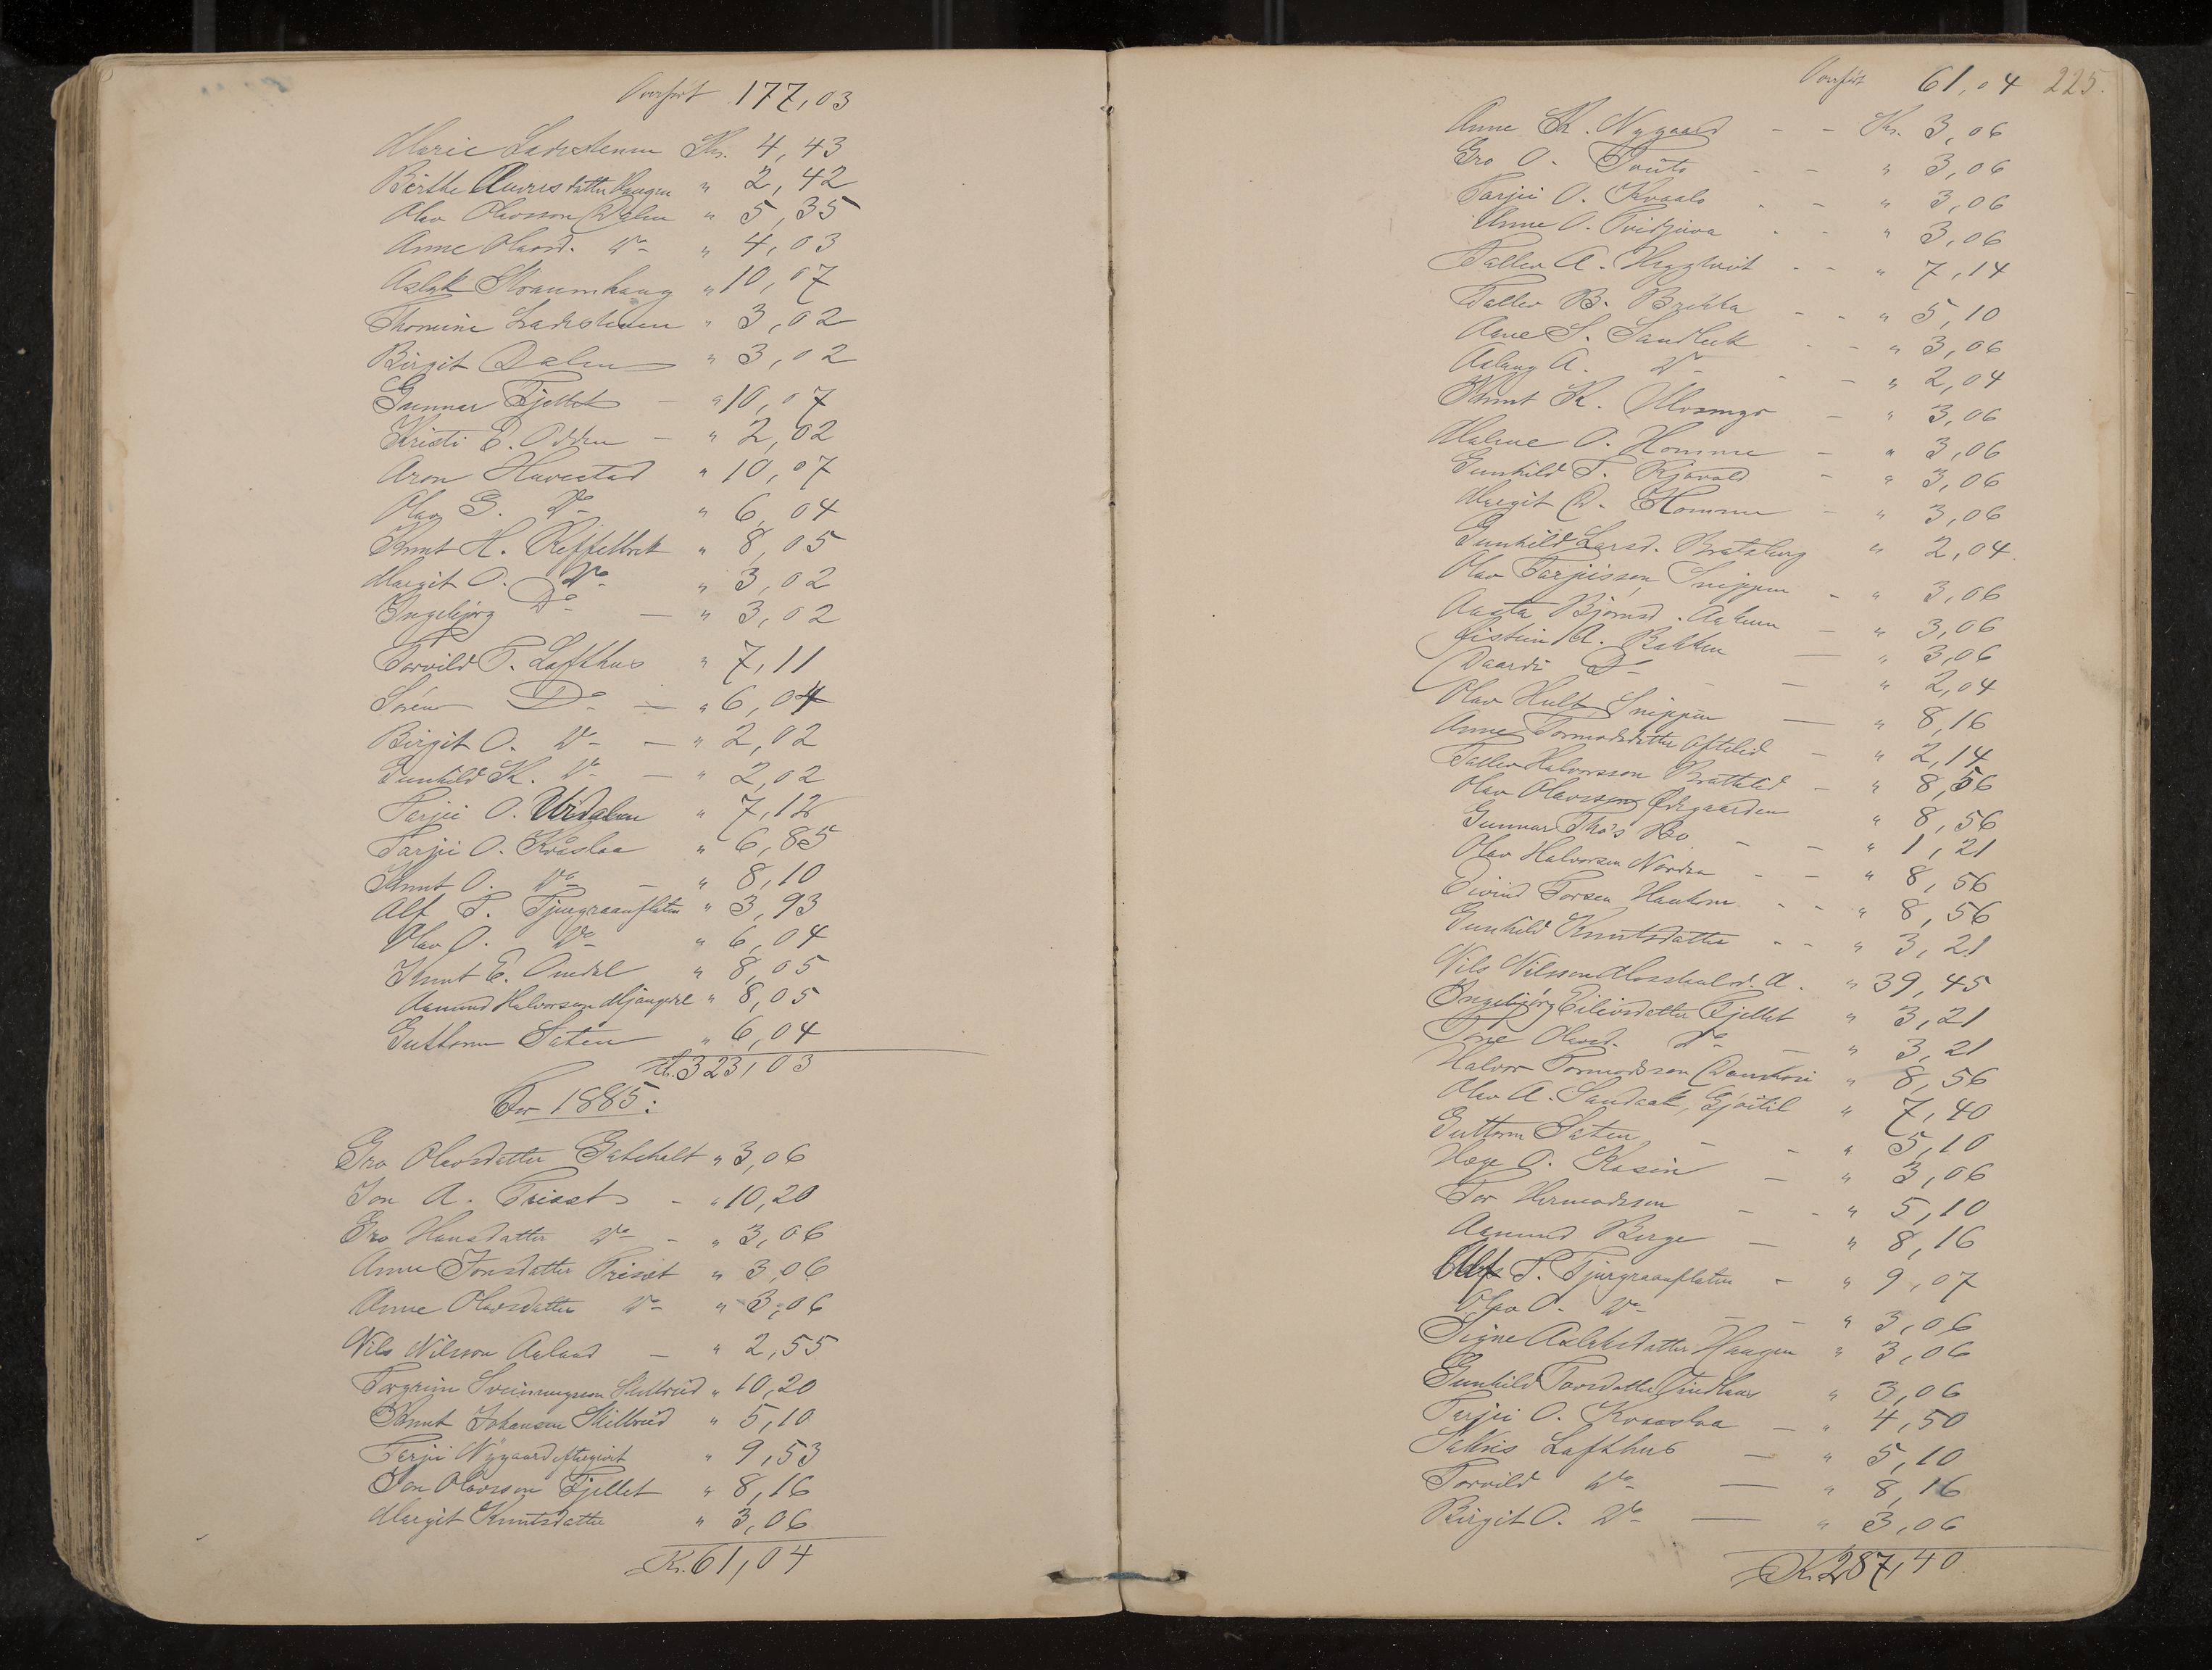 Overført 177,03
Marie Ladesteum Kr. 4,43
Birthe Auverdatter Haugen " 2,42
Olav Olavsson Dalen " 5,35
Anne Olavsd. Do " 4,03
Aslak Straumhaug " 10,07
Thomine Ladesteum " 3,02
Birgit Dalen " 3,02
Gunnar Fjellet - " 10,07
Kristi E. Odden - " 2,02
Aron Huvestad " 10,07
Olav G. Do " 6,04
Knut H. Reffelbrek " 8,05
Margit O. Do " 3,02
Ingebjørg Do — " 3,02
Torvild T. Lofthus " 7,11
Søren Do — " 6,04
Birgit O. Do — " 2,02
Gunhild K. Do — " 2,02
Tarjei O. Uvdalen " 7,12
Tarjei O. Kvaslaa " 6,85
Knut O. Do - " 8,10
Alf T. Tjurgraanflaten " 3,93
Olav O. Do " 6,04
Knut E. Omdal " 8,05
Aamund Halvorsen " 8,05
Guttorm Saten " 6,04
Kr. 323,03
For 1885:
Gro Olavsdatter " 3,06
Jon A. Triset - " 10,20
Gro Hansdatter Do - " 3,06
Anne Jonsdatter Triset " 3,06
Anne Olavsdatter Do " 3,06
Nils Nilsson Aaland — " 2,55
Torgrim Sveinungsson Skilbreid " 10,20
Knut Johansen Skilbreid " 5,10
Terjei Nygaard eftergivit " 9,53
Jon Olavsson Fjellet " 8,16
Margit Knutsdatter " 3,06
Kr. 61,04
Overført 61,04 225.
Anne K. Nygaard - - Kr. 3,06
Gro O. - - " 3,06
Tarjei O. Kvaale - - " 3,06
Anne O. - - " 3,06
Tallev A. Heggtveit - - " 7,14
Tallev B. Brekka - - " 5,10
Anne S. Sandbek - - " 3,06
Aslaug A. Do - - " 2,04
Knut K. - " 3,06
Malene O. Homme - " 3,06
Gunhild T. Kjøvald - " 3,06
Margit D. Homme - " 3,06
Gunhild Larsd. Bratsberg " 2,04
Olav Tarjeisson Snippen - " 3,06
Aasta Bjørnsd. — " 3,06
Eistein A. Bakken — " 3,06
Daardi Do - — " 2,04
Olav Hult Snippen — " 8,16
Anne Tormodsdatter Ofteleid - " 2,14
Tallev Halvorsson Brattelid - " 8,56
Olav Olavsson Ødegaarden " 8,56
Gunnar Tho's Bø - - " 1,21
Olav Halvorsen Norden - - " 8,56
Eivind Torsen Haukom - - " 8,56
Gunhild Knutsdatter - - " 3,21
Nils Nilsson " 39,45
Ingebjørg Eilivsdatter Fjellet " 3,21
Tone Olavsd. Do - " 3,21
Halvor Tormodsson " 8,56
Olav A. Sandaak, Gjøitil " 7,40
Guttorm Saten - - " 5,10
Hæge O. Kasin - " 3,06
Tor Hermodsson - - " 5,10
Aamund Berge - " 8,16
Alf T. Tjurgraanflaten - " 9,07
Olav O. Do - - " 3,06
Signe Aslaksdatter Haugen " 3,06
Gunhild Torsdatter " 3,06
Terjei O. Kvaaslaa - " 4,50
Lofthus — " 5,10
Torvild Do — " 8,16
Birgit O. Do — " 3,06
Kr. 287,40